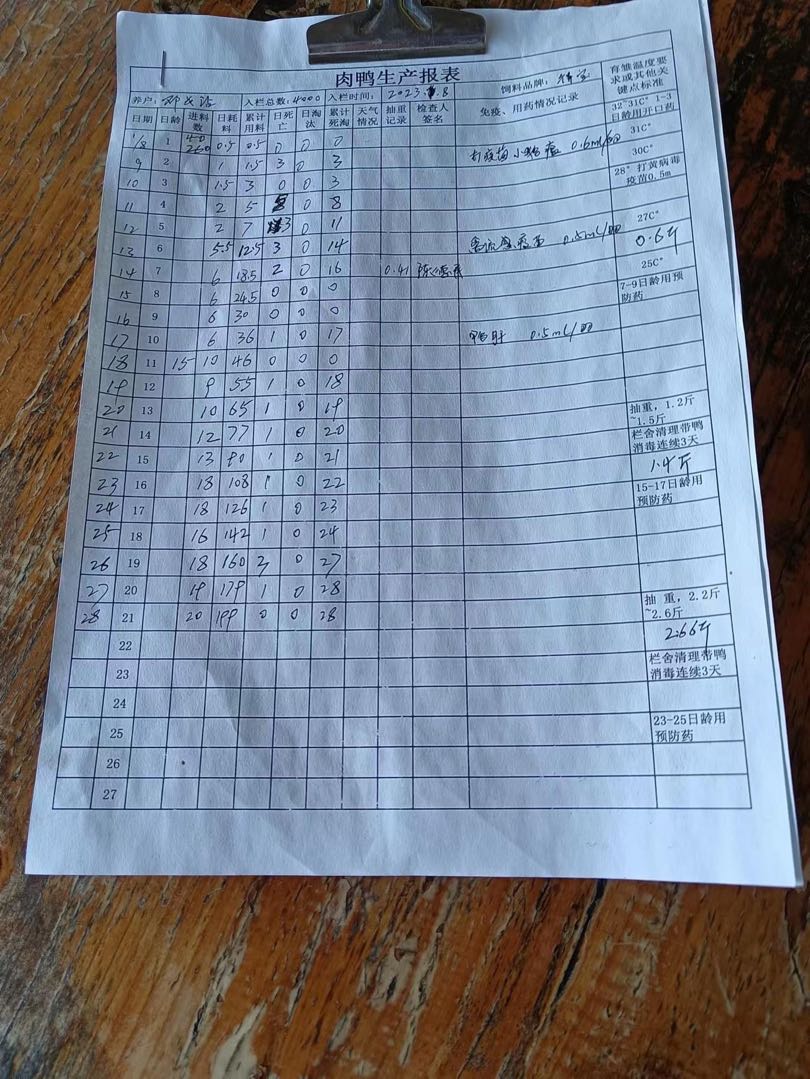 肉鸭生产报表
养户: 入栏总数: 4000 入栏时间: 2023. .8 饲料品牌:
育雏温度要求或其他关键点标准
日期 日龄 进料数 日耗料 累计用料 日死亡 日淘汰 累计死淘 天气情况 抽重记录 检查人签名 免疫、用药情况记录
32~31C° 1-3日龄用开口药
1/8 1 40 260 0.5 0.5 0 0 0 打疫苗小鹅瘟 0.6ml/
31C°
9 2 1 1.5 3 0 3
30C°
10 3 1.5 3 0 0 3
28° 打黄病毒疫苗0.5m
11 4 2 5 0 8
12 5 2 7 3 0 11
27C°
13 6 5.5 12.5 3 0 14 禽流感疫苗 0.5ml/
0.6斤
14 7 6 18.5 2 0 16 0.41
25C°
15 8 6 24.5 0 0 0
7-9日龄用预防药
16 9 6 30 0 0 0
17 10 6 36 1 0 17 鸭肝 0.5ml/
18 11 15 10 46 0 0 0
19 12 9 55 1 0 18
20 13 10 65 1 0 19
抽重，1.2斤~1.5斤
21 14 12 77 1 0 20
栏舍清理带鸭消毒连续3天
22 15 13 90 1 0 21
1.4斤
23 16 18 108 1 0 22
15-17日龄用预防药
24 17 18 126 1 0 23
25 18 16 142 1 0 24
26 19 18 160 3 0 27
27 20 19 179 1 0 28
抽 重，2.2斤~2.6斤
28 21 20 199 0 0 28
2.66斤
22
栏舍清理带鸭消毒连续3天
23
24
23-25日龄用预防药
25
26
27